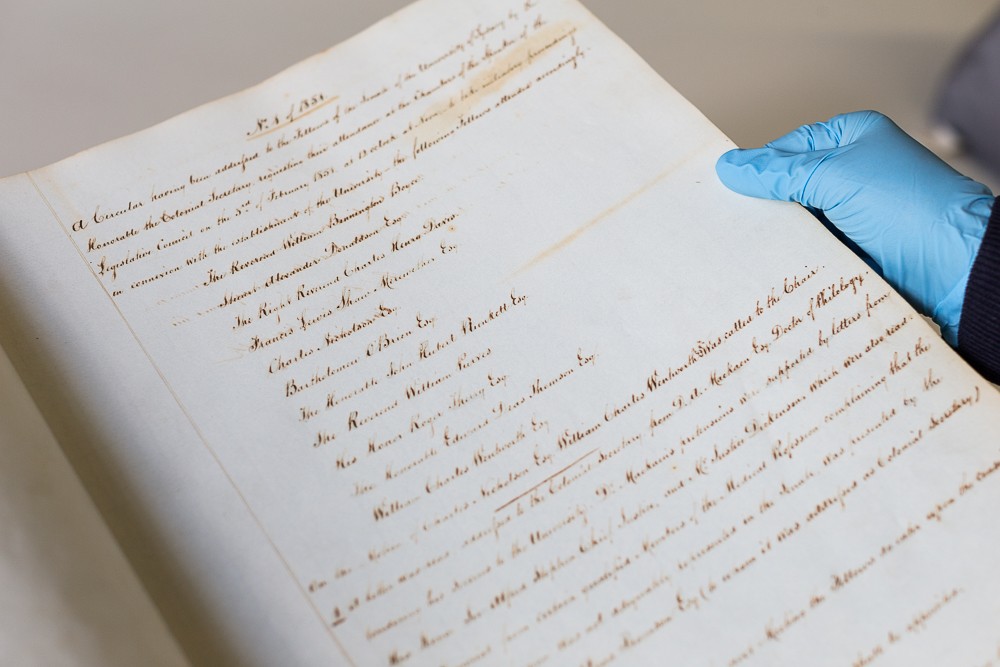 No. 1 of 1851
A Circular having been addressed to the Fellows of the Senate of the University of Sydney by the
Honorable the Colonial Secretary, requesting their attendance at the Chambers of the Speaker of the
Legislative Council on the 3rd of February 1851. at 12 oclock at Noon to take initiatory proceedings
in connexion with the establishment of the University the following Fellows attended accordingly.
The Reverend William Binnington Boyce
Stuart Alexander Donaldson Esq
The Right Reverend Charles Henry Davis
Francis Lewis Shaw Merewether Esq
Charles Nicholson Esq
Bartholomew O'Brien Esq
The Honorable John Hubert Plunkett Esq
The Reverend William Purves
His Honor Roger Therry Esq
The Honorable Edward Deas Thomson Esq
William Charles Wentworth Esq
On the Motion of Charles Nicholson Esq William Charles Wentworth Esq was called to the Chair.
A letter was read addressed to the Colonial Secretary from D. et. Mackan Esq Doctor of Philology
his services to the University. Dr Mackan's pretensions were supported by letters from
His Honor Sir Alfred Stephen Chief Justice, and Mr Justice Dickinson which were also read.
from certain qualified Members of the Medical Profession complaining that the
was not adequately represented in the Senate was presented by the
Thomson Esq (to whom it was addressed as Colonial Secretary)
the Fellows to take upon the
be appointed.